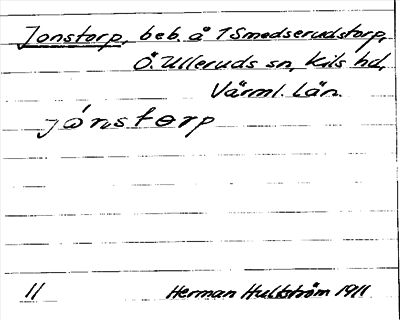 Jonstorp, beb. å 1 Smedserudstorp,
Ö. Ulleruds sn, Kils hd,
Värml. län.
jónstorp
11 Herman Hultström 1911